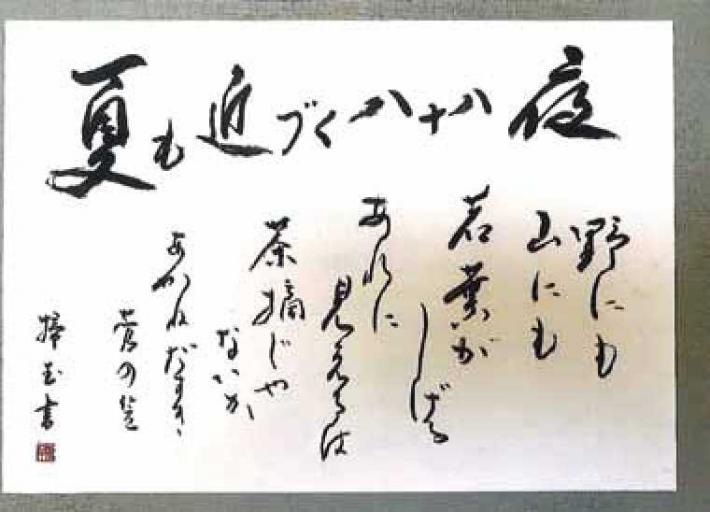 夏も近づく八十八夜
野にも
山にも
若葉が
しげる
あれに
見えるは
茶摘じや
ないか
あかねだすきに
菅の笠
書